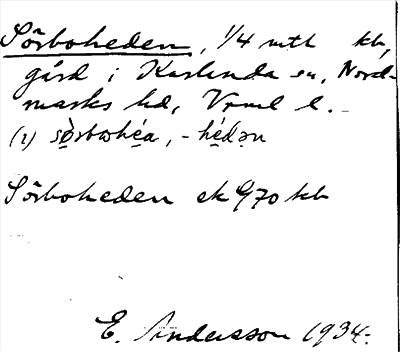 Sörboheden, 1/4 mtl kb,
gård i Karlanda sn, Nord-
marks hd, Vrml l.
(1) sørbohea, -hedən
Sörboheden ek 970 kb
E. Andersson 1934.